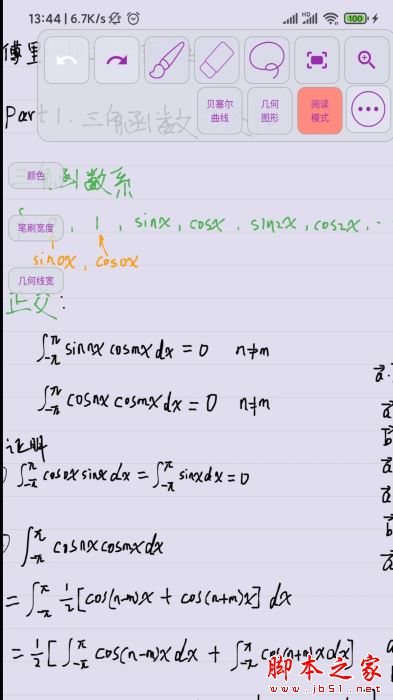 13:44 | 6.7K/s
100
傅里
贝塞尔曲线
几何图形
阅读模式
Part1. 三角函数
颜色
三角函数系
笔刷宽度
, 1 , sinx, cosx , sin2x, cos2x, ..
sin0x, cos0x
几何线宽
正交:
∫_{-π}^{π} sin nx cos mx dx = 0 n≠m
∫_{-π}^{π} cos nx cos mx dx = 0 n≠m
证明
∫_{-π}^{π} cos0x sinx dx = ∫_{-π}^{π} sinx dx = 0
∫_{-π}^{π} cos nx cos mx dx
= ∫_{-π}^{π} 1/2 [cos(n-m)x + cos(n+m)x] dx
= 1/2 [∫_{-π}^{π} cos(n-m)x dx + ∫_{-π}^{π} cos(n+m)x dx]
脚本之家
www.jb51.net